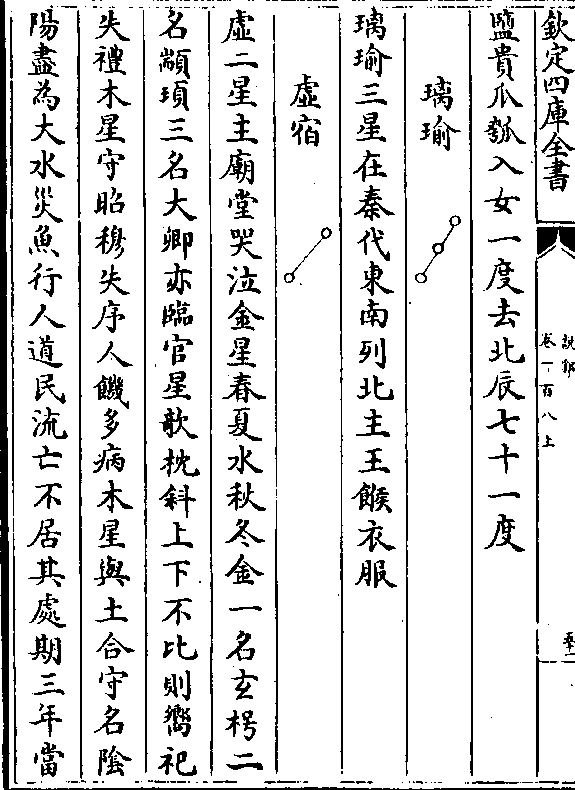 欽定四庫全書
說郛
卷一百八上
監貴瓜瓠入女一度去北辰七十一度
璃瑜
璃瑜三星在秦代東南列北主王餱衣服
虛宿
虛二星主廟堂哭泣金星春夏水秋冬金一名玄枵二
名顓頊三名大卿亦臨官星欹枕斜上下不比則嚮祀
失禮木星守昭穆失序人饑多病木星與土合守名陰
陽盡為大水災魚行人道民流亡不居其處期三年當